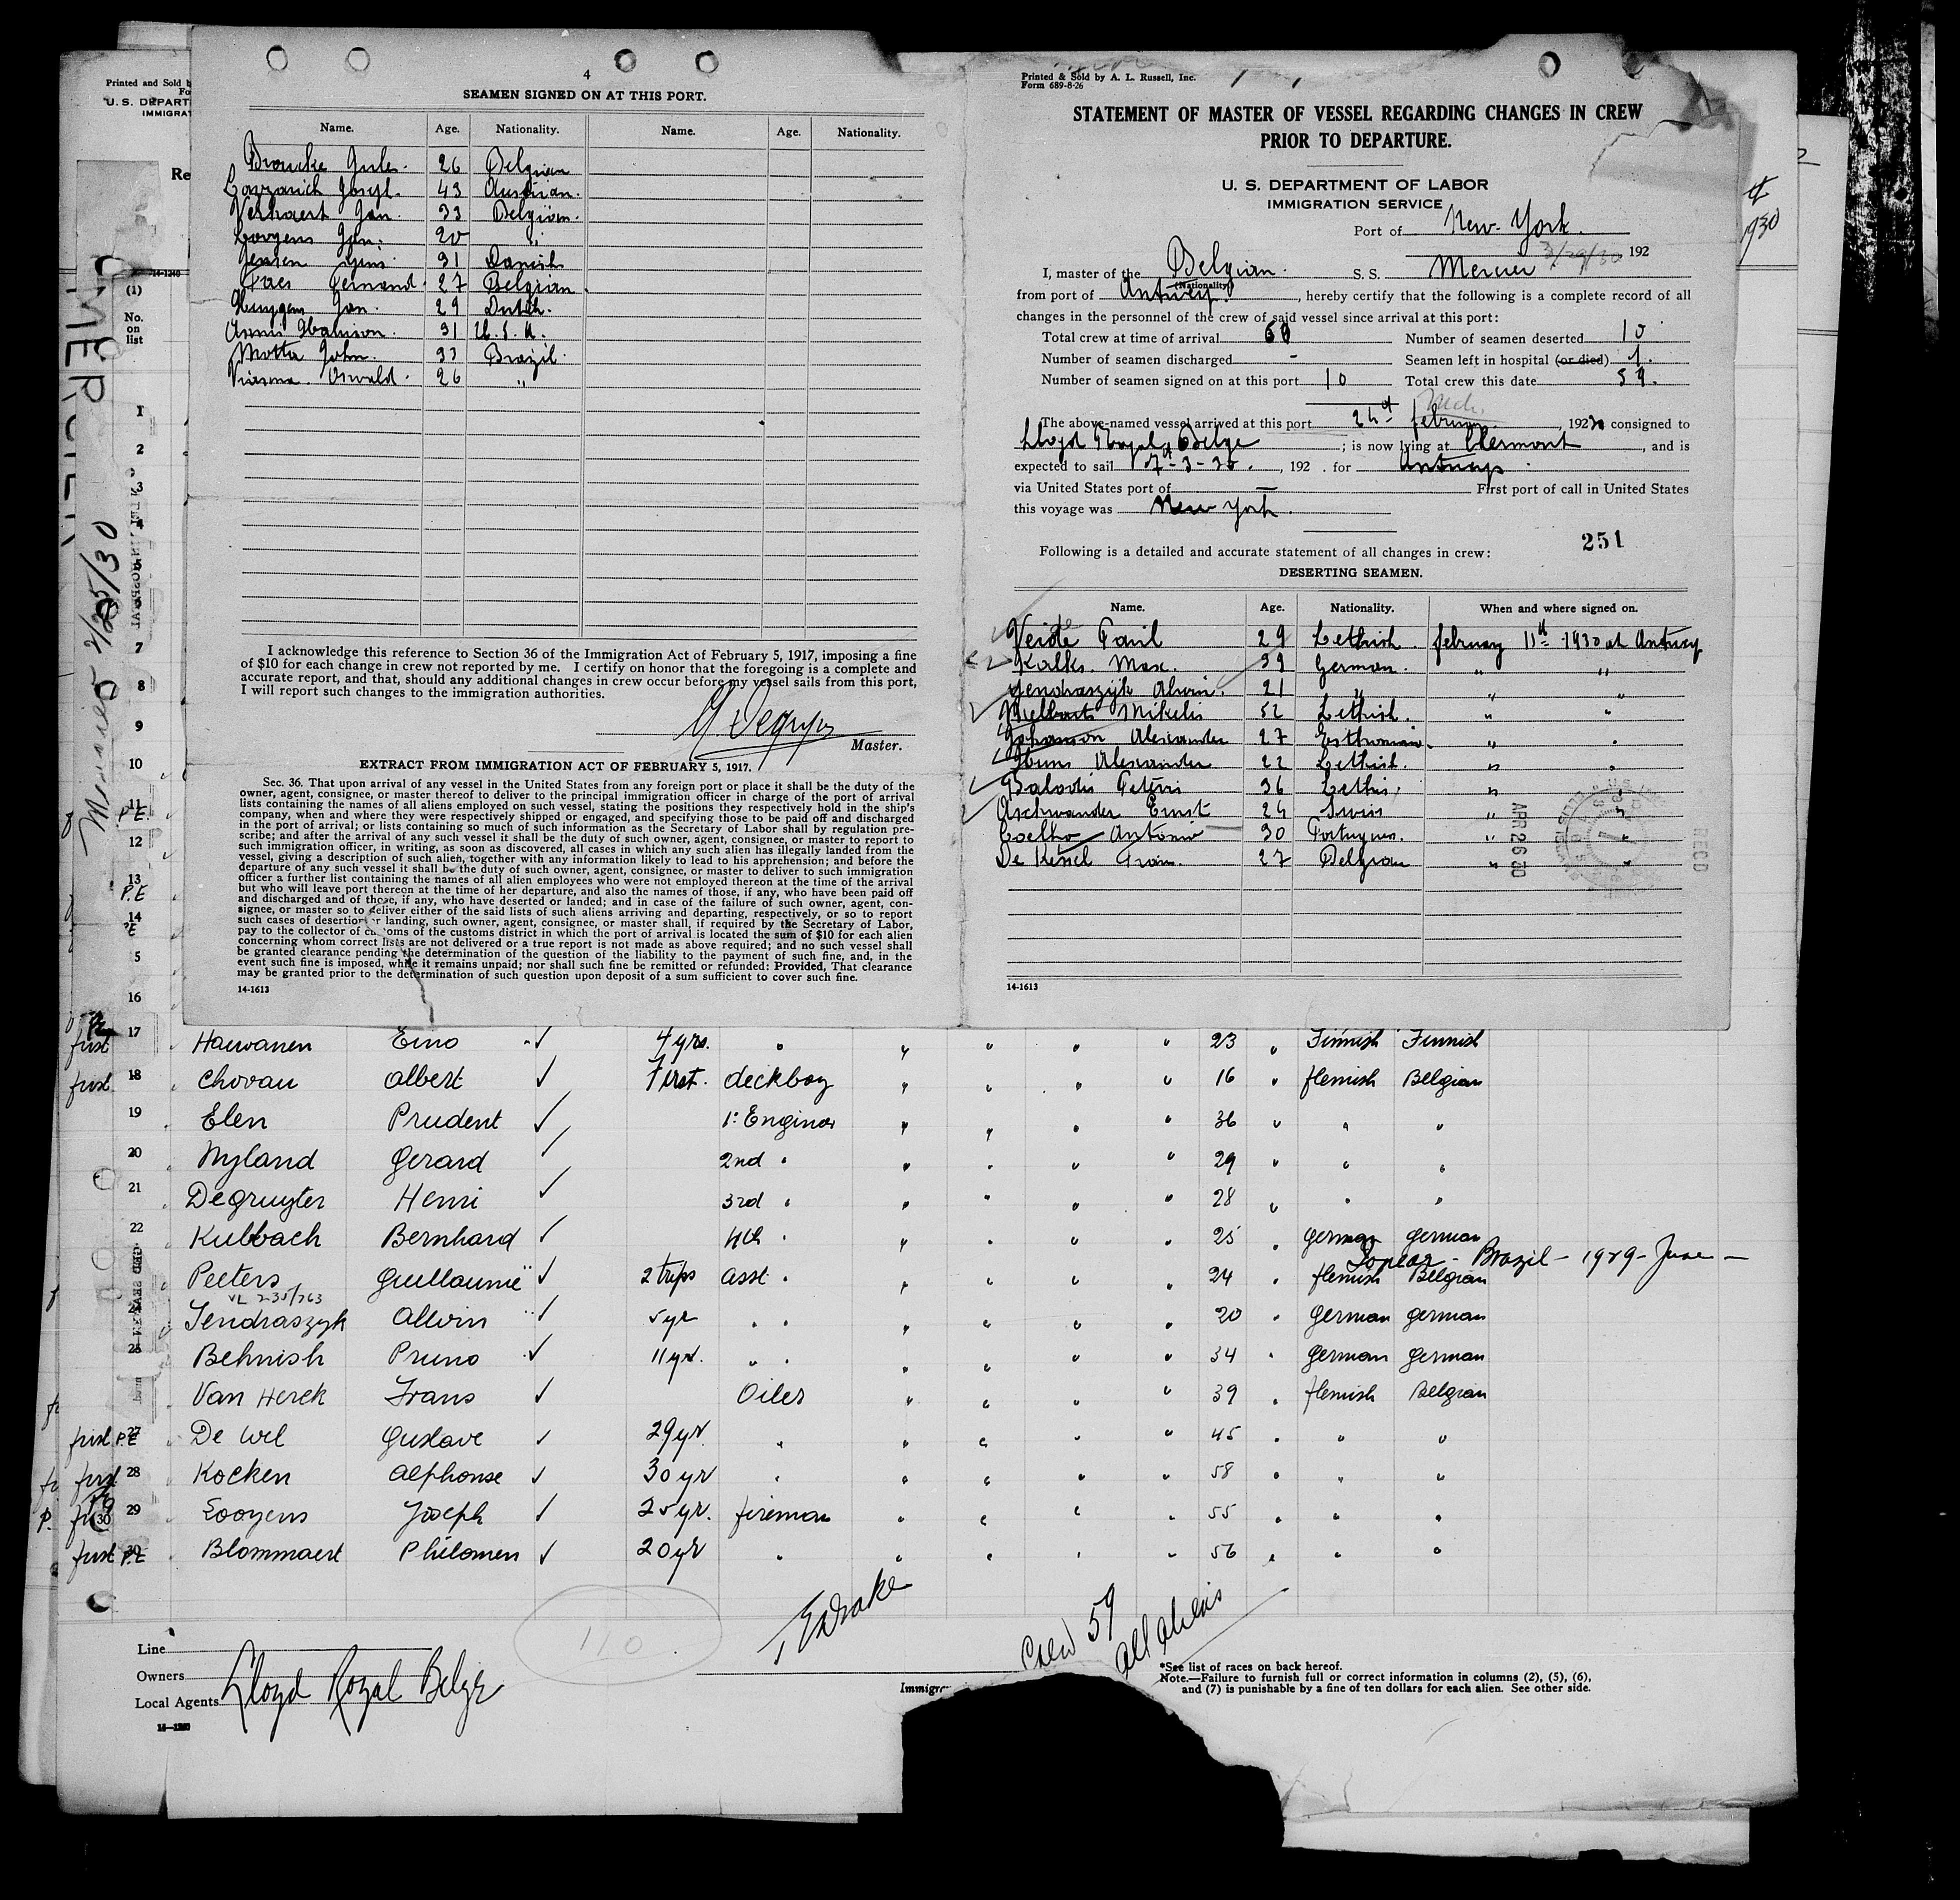 4
SEAMEN SIGNED ON AT THIS PORT.
Name. Age. Nationality. Name. Age. Nationality.
Broucke Jules. 26 Belgian
43 Austrian.
Verhaert Jan. 33 Belgian.
Jan. 20 "
Jensen 31 Danish
Fernand. 27 Belgian.
Jan. 29 Dutch.
31 U.S.A.
Motta John. 33 Brazil.
Oswald. 26 "
I acknowledge this reference to Section 36 of the Immigration Act of February 5, 1917, imposing a fine
of $10 for each change in crew not reported by me. I certify on honor that the foregoing is a complete and
accurate report, and that, should any additional changes in crew occur before my vessel sails from this port,
I will report such changes to the immigration authorities.
Master.
EXTRACT FROM IMMIGRATION ACT OF FEBRUARY 5, 1917.
Sec. 36. That upon arrival of any vessel in the United States from any foreign port or place it shall be the duty of the
owner, agent, consignee, or master thereof to deliver to the principal immigration officer in charge of the port of arrival
lists containing the names of all aliens employed on such vessel, stating the positions they respectively hold in the ship's
company, when and where they were respectively shipped or engaged, and specifying those to be paid off and discharged
in the port of arrival; or lists containing so much of such information as the Secretary of Labor shall by regulation pre-
scribe; and after the arrival of any such vessel it shall be the duty of such owner, agent, consignee, or master to report to
such immigration officer, in writing, as soon as discovered, all cases in which any such alien has illegally landed from the
vessel, giving a description of such alien, together with any information likely to lead to his apprehension; and before the
departure of any such vessel it shall be the duty of such owner, agent, consignee, or master to deliver to such immigration
officer a further list containing the names of all alien employees who were not employed thereon at the time of the arrival
but who will leave port thereon at the time of her departure, and also the names of those, if any, who have been paid off
and discharged and of those, if any, who have deserted or landed; and in case of the failure of such owner, agent, con-
signee, or master so to deliver either of the said lists of such aliens arriving and departing, respectively, or so to report
such cases of desertion or landing, such owner, agent, consignee, or master shall, if required by the Secretary of Labor,
pay to the collector of customs of the customs district in which the port of arrival is located the sum of $10 for each alien
concerning whom correct lists are not delivered or a true report is not made as above required; and no such vessel shall
be granted clearance pending the determination of the question of the liability to the payment of such fine, and, in the
event such fine is imposed, while it remains unpaid; nor shall such fine be remitted or refunded: Provided, That clearance
may be granted prior to the determination of such question upon deposit of a sum sufficient to cover such fine.
14-1613
Printed & Sold by A. L. Russell, Inc.
Form 689-8-26
STATEMENT OF MASTER OF VESSEL REGARDING CHANGES IN CREW
PRIOR TO DEPARTURE.
U. S. DEPARTMENT OF LABOR
IMMIGRATION SERVICE
Port of New York.
192
I, master of the Belgian. S. S. Mercier
(Nationality)
from port of Antwerp, hereby certify that the following is a complete record of all
changes in the personnel of the crew of said vessel since arrival at this port:
Total crew at time of arrival 60 Number of seamen deserted 10
Number of seamen discharged - Seamen left in hospital (or died) 1.
Number of seamen signed on at this port 10 Total crew this date 59.
The above-named vessel arrived at this port february, 192 consigned to
Lloyd Royal Belge; is now lying at Clermont, and is
expected to sail, 192 . for Antwerp.
via United States port of — First port of call in United States
this voyage was New York.
251
Following is a detailed and accurate statement of all changes in crew:
DESERTING SEAMEN.
Name. Age. Nationality. When and where signed on.
Veide Paul 29 Lethish. february 11th 1930 at Antwerp
Kalks. Max. 39 German. " "
Jendraszyk Alwin. 21 " " "
Mikelis 52 Lethish. " "
Johanson Alexander 27 " "
Alexander 22 Lethish. " "
Balodis 36 "
Aschwander Ernst 24 Swiss " "
Coelho Antonio 30 " "
De Kesel Frans. 27 Belgian " "
APR 26 30
RECD
14-1613
Printed and Sold b
U. S. DEPART
IMMIGRAT
Re
14-1240
(1)
No.
on
list
MERCIER
1
2
3
4
5
6
7
8
9
10
11 PE
12
13 P.E
14 PE
5
16
first 17 Haewanen Eino 4 yrs. " " " " " 23 " Finnish Finnish
first 18 Chovau Albert first. deckboy " " " " 16 " flemish Belgian
19 Elen Prudent 1: Engineer " " " " 36 " " "
20 Nyland Gerard 2nd " " " " " 29 " " "
21 Degruyter Henri 3rd " " " " " 28 " " "
22 Kulbach Bernhard 4th " " " " " 25 " german german
Brazil - 1929 - June -
Peeters Guillaume 2 trips asst " " " " " 24 " flemish Belgian
VL 235/263
24 Jendraszyk Alwin 5 yr " " " " " " 20 " german german
25 Behnish Pruno 11 yr. " " " " " " 34 " german german
Van Herck Frans Oiler " " " " 39 " flemish Belgian
first P.E 27 De Wel Gustave 29 yr. " " " " " 45 " " "
first 28 Kocken Alphonse 30 yr " " " " " 58 " " "
29 Looyens Joseph 25 yr. fireman " " " " 55 " " "
first P.E 30 Blommaert Philomen 20 yr " " " " " 56 " " "
110
Crew 59
all aliens
Line
Owners
Local Agents Lloyd Royal Belge
14-1240
Immigr
*See list of races on back hereof.
Note.—Failure to furnish full or correct information in columns (2), (5), (6),
and (7) is punishable by a fine of ten dollars for each alien. See other side.